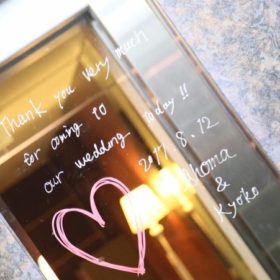 Thank you very much
for coming to
our wedding today!!
2017. 8. 12
&
Kyoko